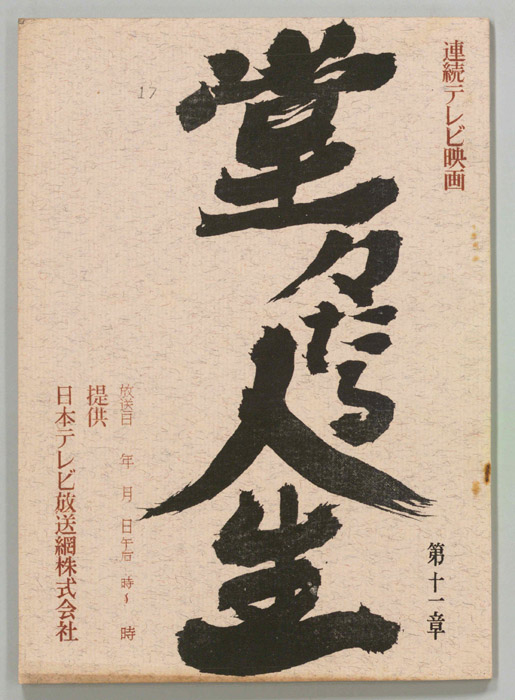 連続テレビ映画
堂々たる人生
第十一章
17
放送日　年　月　日午后　時〜　時
提供
日本テレビ放送網株式会社